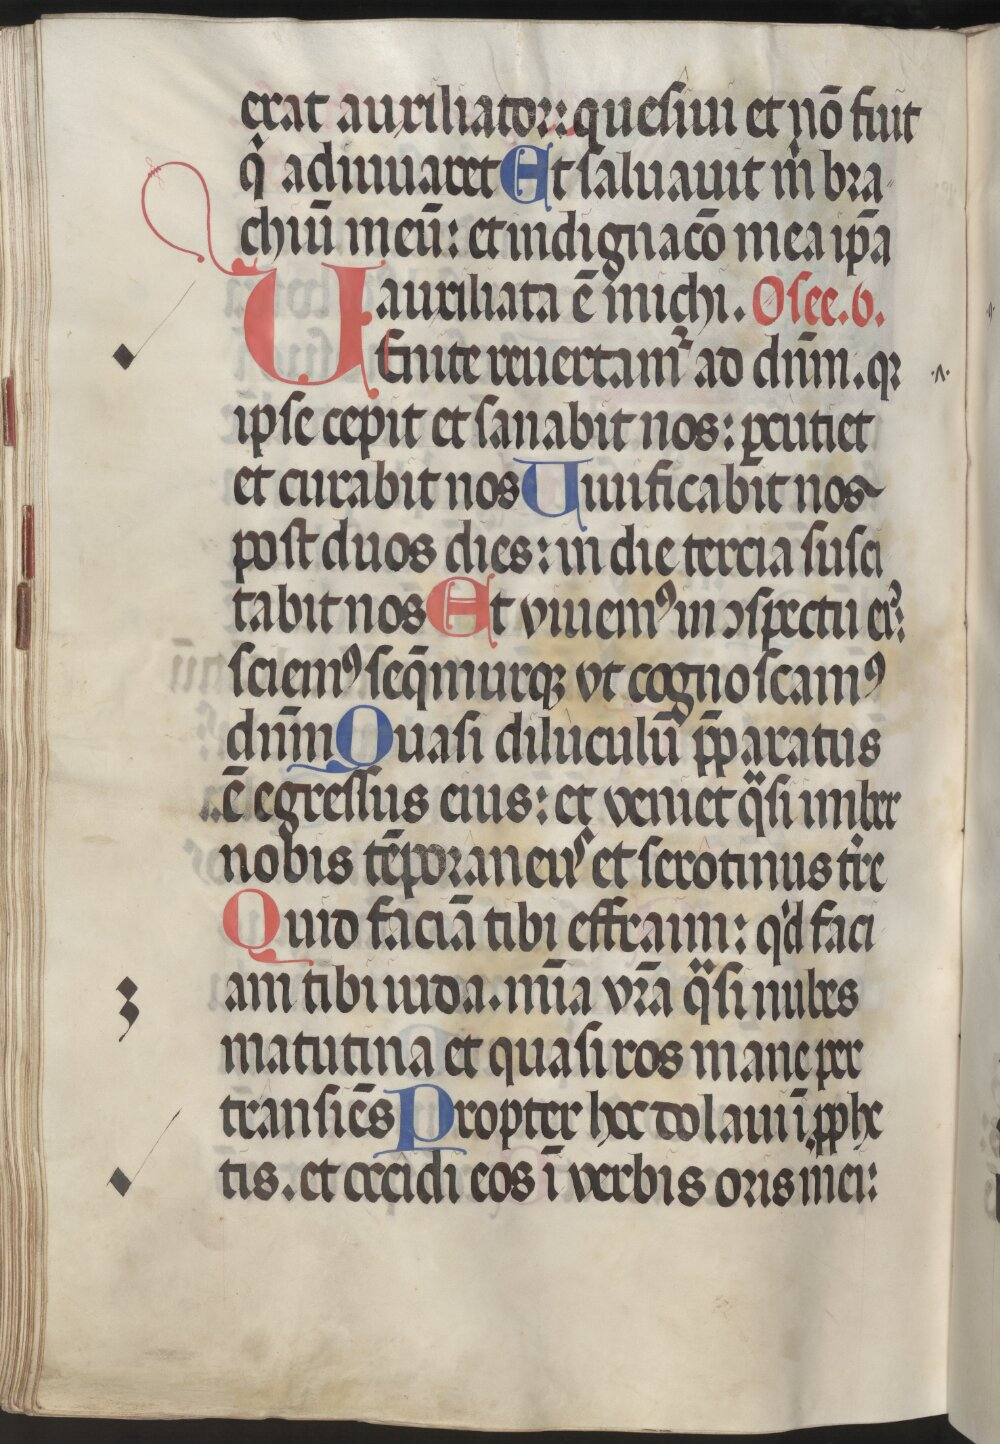 erat auxiliator: quesiui et nō fuit
q̇ adiuuaret Et saluauit m̄ bra
chiū meū: et indignacō mea ip̄a
auxiliata ē michi. Osee.6.
Uenite reuertamr̄ ad dnm̄. qꝛ
ipse cepit et sanabit nos: ꝑcutiet
et curabit nos Uiuificabit nos
post duos dies: in die tercia susci
tabit nos Et viuemꝰ in ↄspectu eiꝰ:
sciemꝰ seq̄murqꝫ vt cognoscamꝰ
dnm̄ Quasi diluculū p̄paratus
ē egressus eius: et veniet qͣsi imber
nobis tēporaneuˢ et serotinus tr̄e
Quid faciā tibi effraim: qͥd faci
am tibi iuda. mīa vr̄a qͣsi nubes
matutina et quasi ros mane per
transiēs Propter hec dolaui ī ꝓphe
tis. et occidi eos ī verbis oris mei: